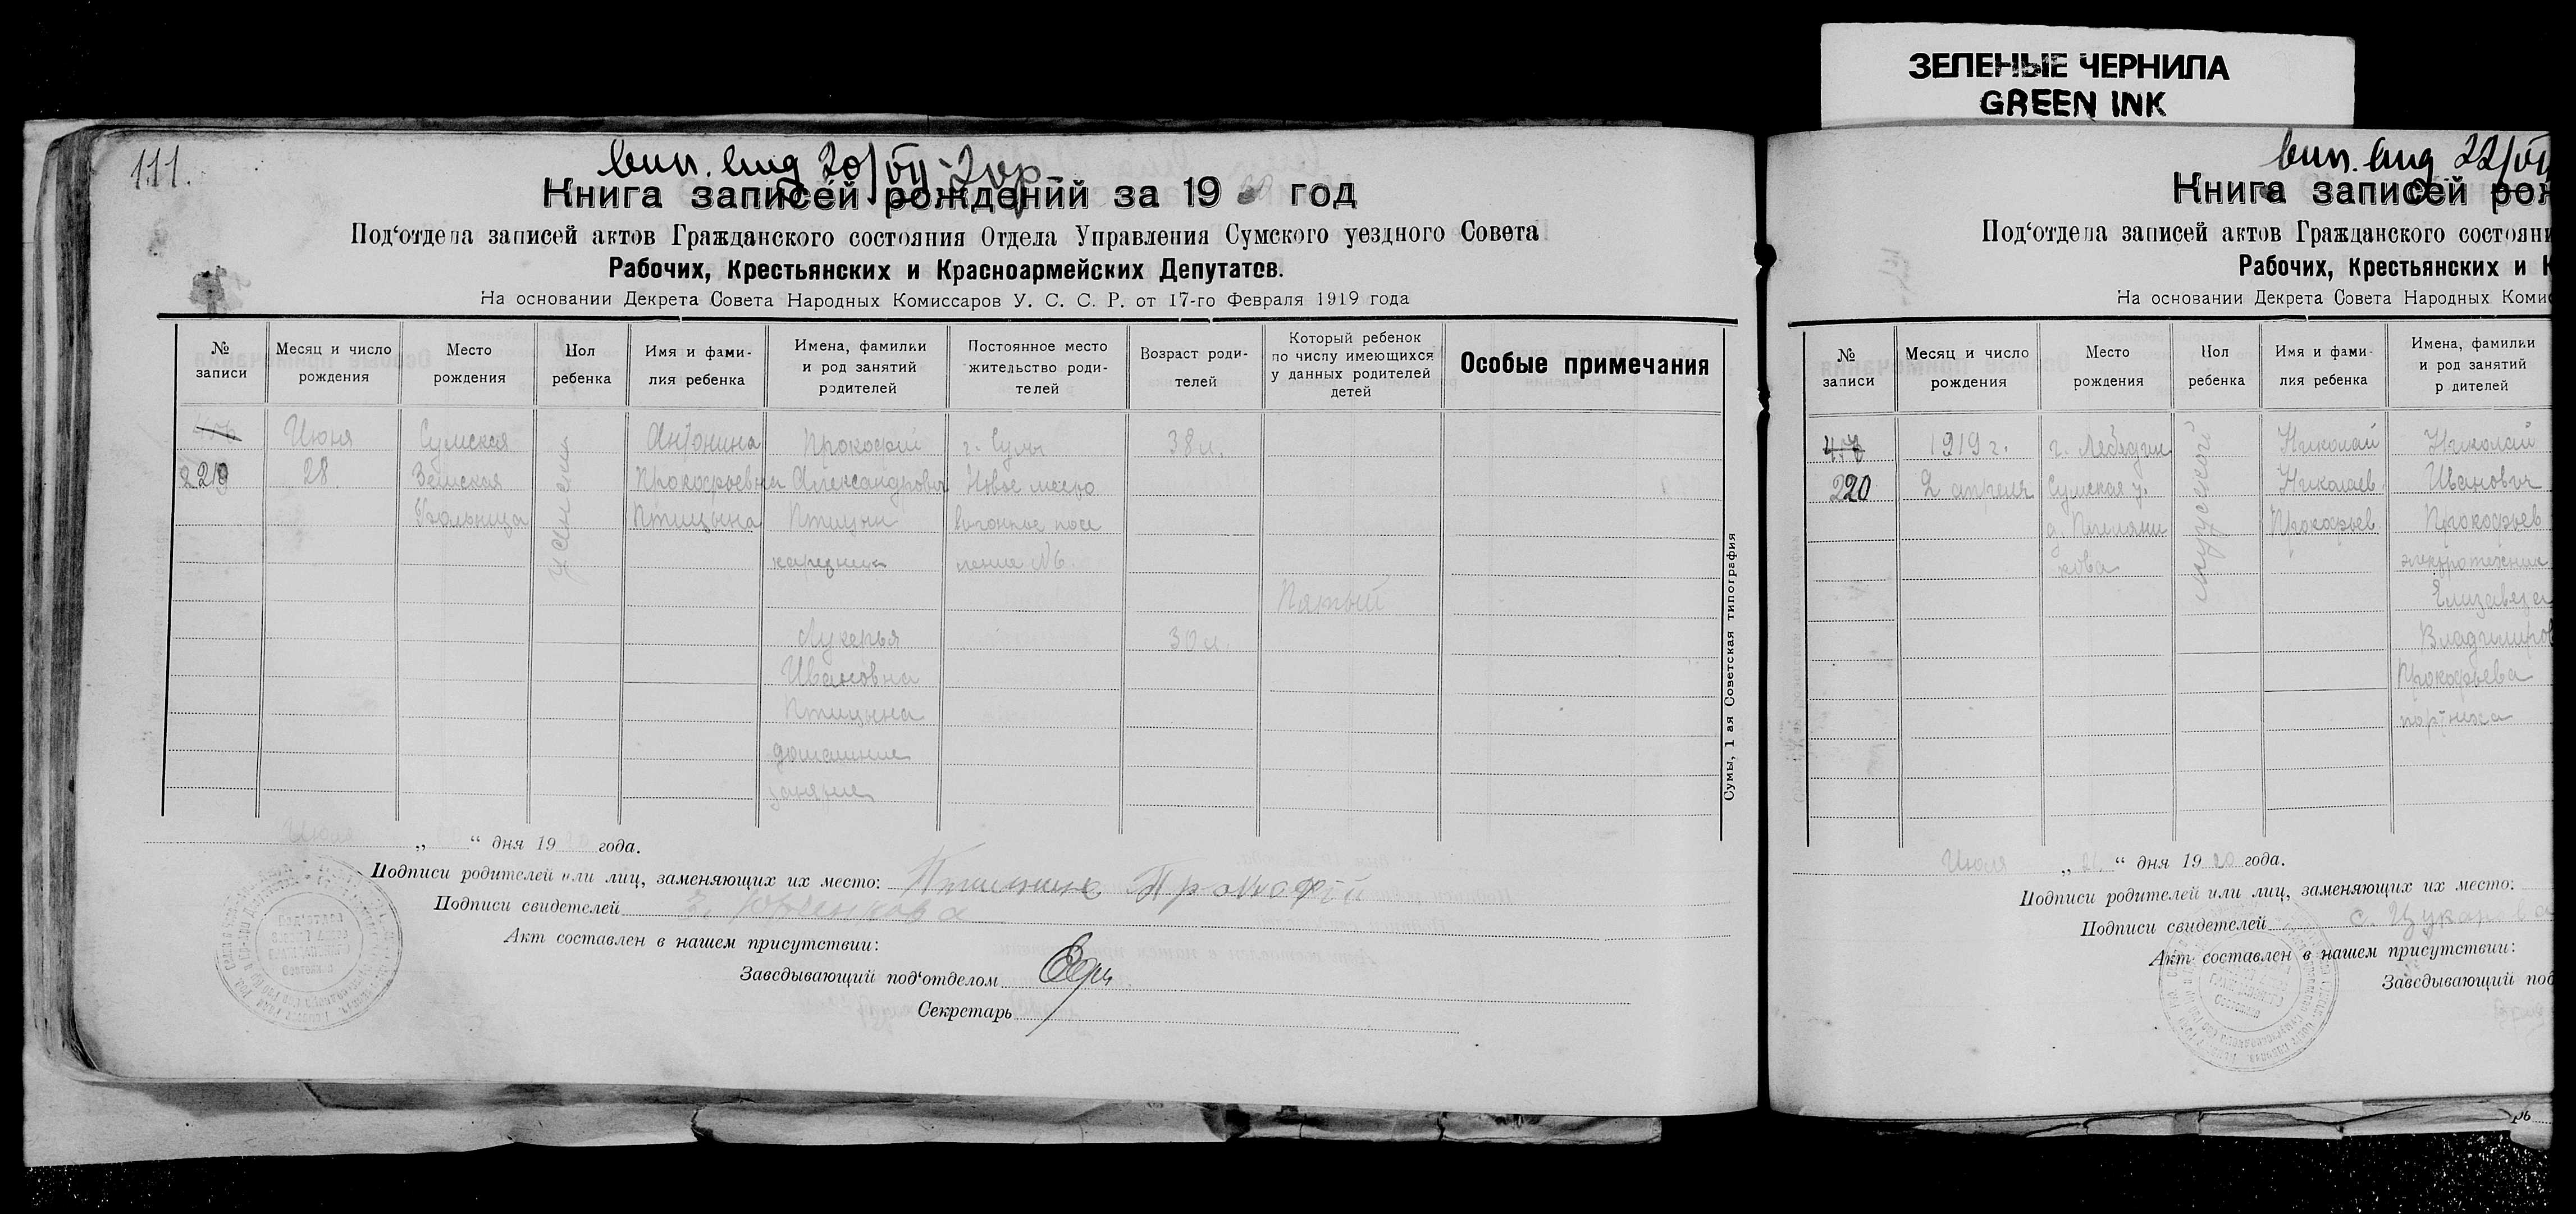 ЗЕЛЕНЫЕ ЧЕРНИЛА
GREEN INK
111.
20/VII-20 р.
Книга записей рождений за 1920 год
Под‘отдела записей актов Гражданского состояния Отдела Управления Сумского уездного Совета
Рабочих, Крестьянских и Красноармейских Депутатов.
На основании Декрета Совета Народных Комиссаров У. С. С. Р. от 17-го Февраля 1919 года
№ записи
Месяц и число рождения
Место рождения
Пол ребенка
Имя и фамилия ребенка
Имена, фамилии и род занятий родителей
Постоянное место жительство родителей
Возраст родителей
Который ребенок по числу имеющихся у данных родителей детей
Особые примечания
219
Июня
28
Сумская
Земская
Больница
женский
Антонина
Прокофьевна
Птицына
Прокофий
Александрович
Птицын
Лукерья
Ивановна
Птицына
домашние
занятие
г. Сумы
Новое место
38 л.
30 л.
Пятый
Сумы, 1 ая Советская типография
Июля „ “ дня 19 года.
Подписи родителей или лиц, заменяющих их место:
Прокофий
Подписи свидетелей
Акт составлен в нашем присутствии:
Заведывающий под‘отделом
Секретарь
22/VII
Книга записей рож
Под‘отдела записей актов Гражданского состояни
Рабочих, Крестьянских и К
На основании Декрета Совета Народных Коми
№ записи
Месяц и число рождения
Место рождения
Пол ребенка
Имя и фамилия ребенка
Имена, фамилии и род занятий родителей
220
1919 г.
2 апреля
г. Лебедин
Сумская у.
мужской
Николай
Николаев.
Прокофьев
Николай
Иванович
Прокофьев
электротехник
Елизавета
Владимиров
Прокофьева
портниха
Июля „21“ дня 1920 года.
Подписи родителей или лиц, заменяющих их место:
Подписи свидетелей
Акт составлен в нашем присутствии:
Заведывающий под